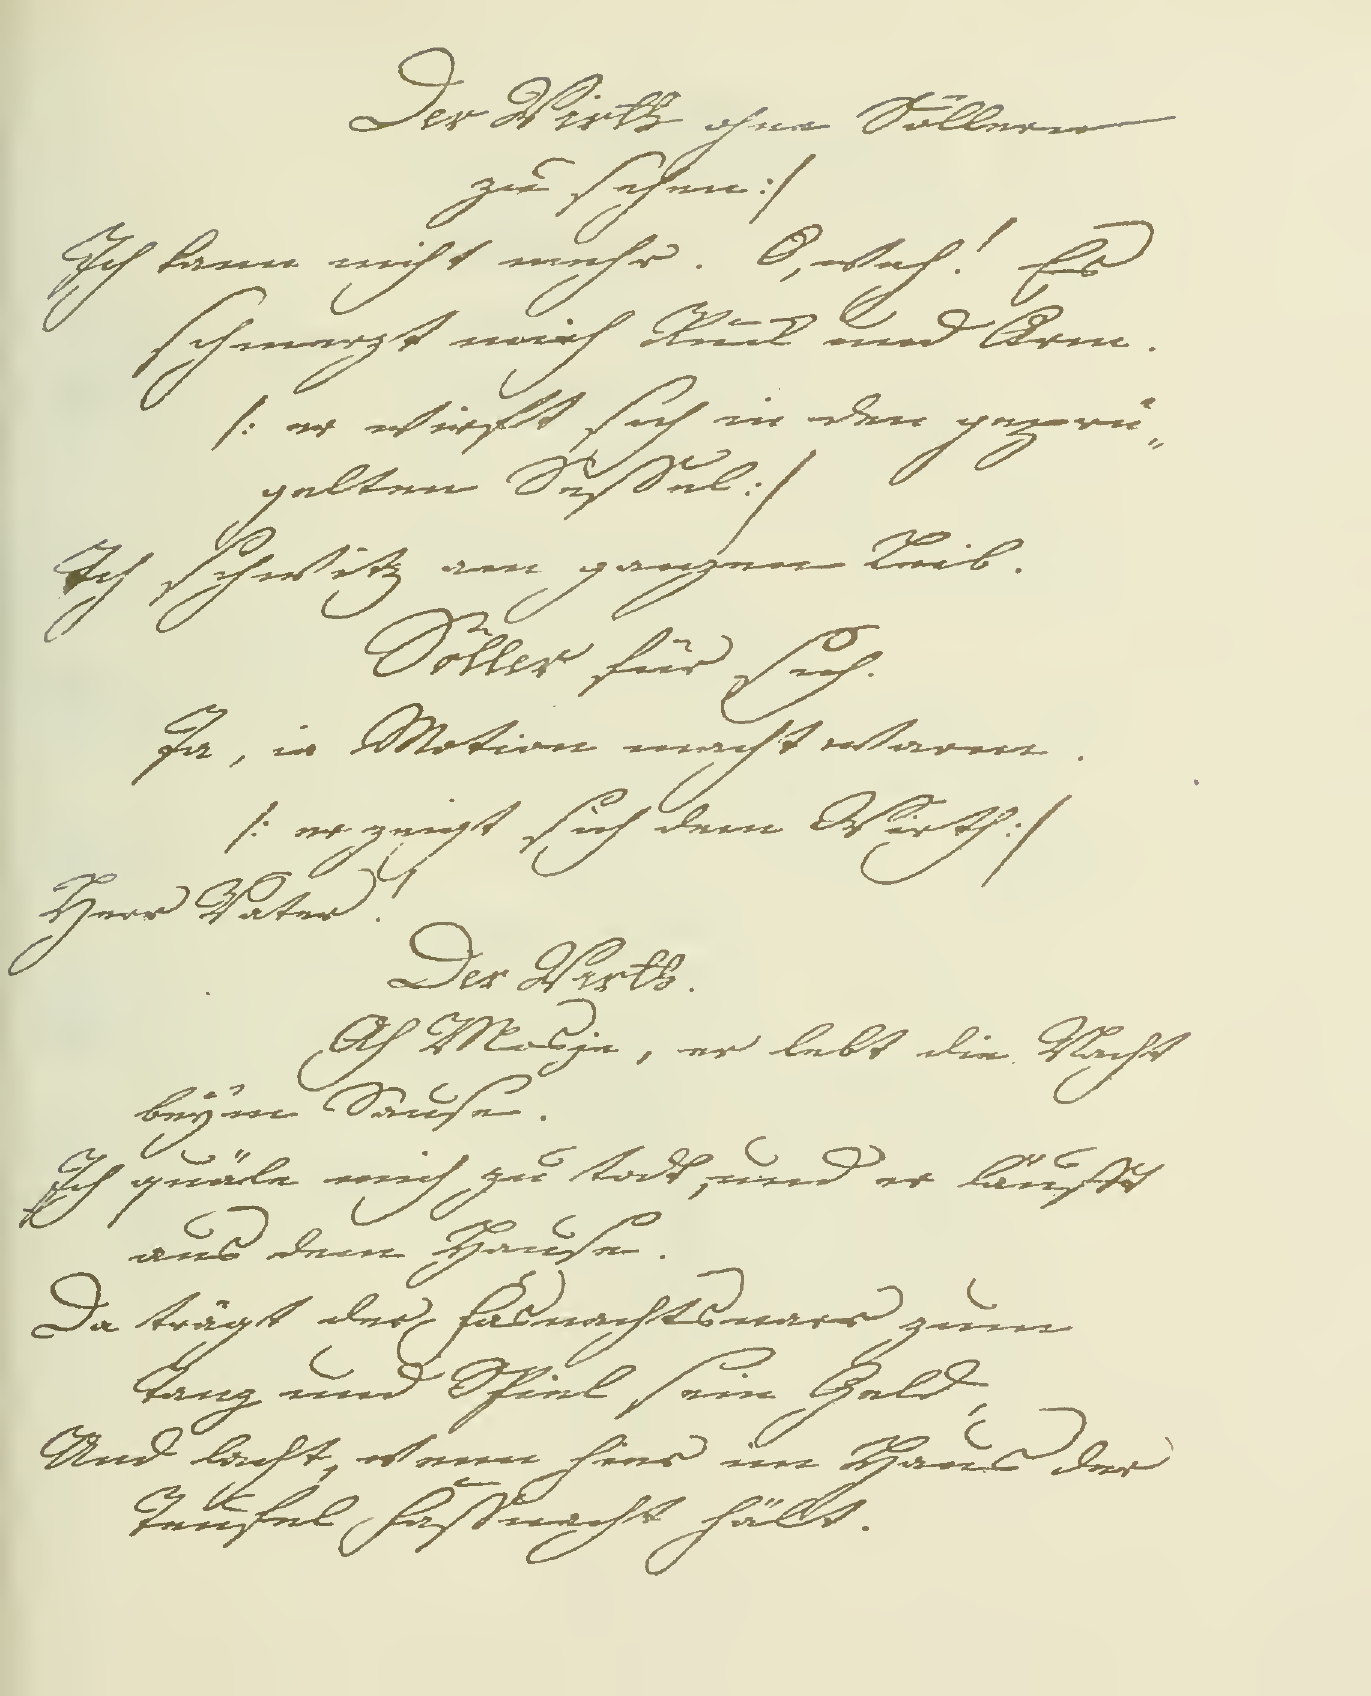 Der Wirth ohne Söllern
zu sehen:/
Ich kann nicht mehr. O, weh! Es
schmerzt mich Knie und Arm.
/: er wirft sich in den geprü„
gelten Sessel:/
Ich schwitz am ganzen Leib.
Söller für sich.
Ja, ja Motion macht warm.
/: er zeigt sich dem Wirth:/
Herr Vater!
Der Wirth.
Ah Mosje, er lebt die Nacht
beÿm Sause.
Ich quäle mich zu todt, und er läufft
aus dem Hause.
Da trägt der Fasnachtsnarr zum
Tanz und Spiel sein Geld,
Und lacht, wenn hier im Haus der
Teufel Fassnacht hält.